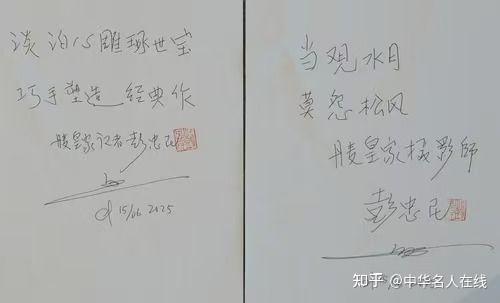 淡泊心雕琢世宝
巧手塑造经典作
皇家记者彭忠民
15/06 2025
当观水月
莫怨松风
皇家摄影師
彭忠民
知乎 @中华名人在线